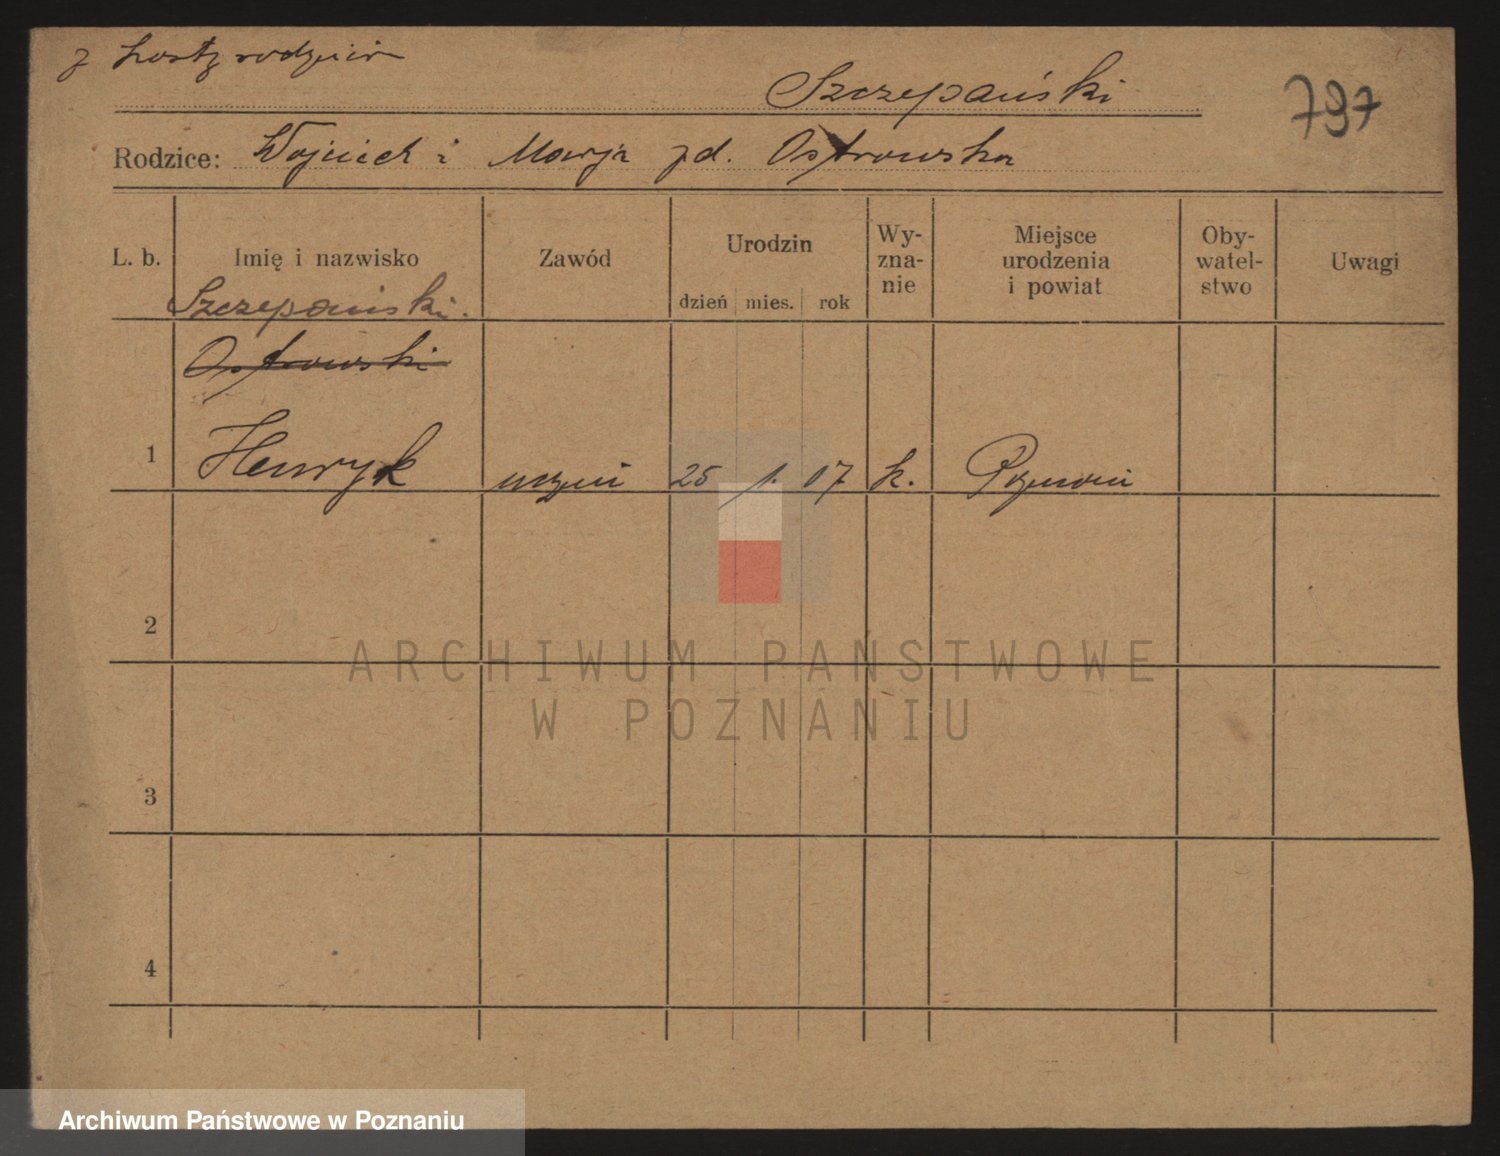 z karty rodzicu
Szczepański 797
Rodzice: Wojciech i Marja zd. Ostrowska
L. b. Imię i nazwisko Zawód Urodzin dzień mies. rok Wy-zna-nie Miejsce urodzenia i powiat Oby-watel-stwo Uwagi
Szczepański.
Ostrowski
1 Henryk uczeń 25 1. 07 k. Poznań
2
3
4
ARCHIWUM PAŃSTWOWE
W POZNANIU
Archiwum Państwowe w Poznaniu